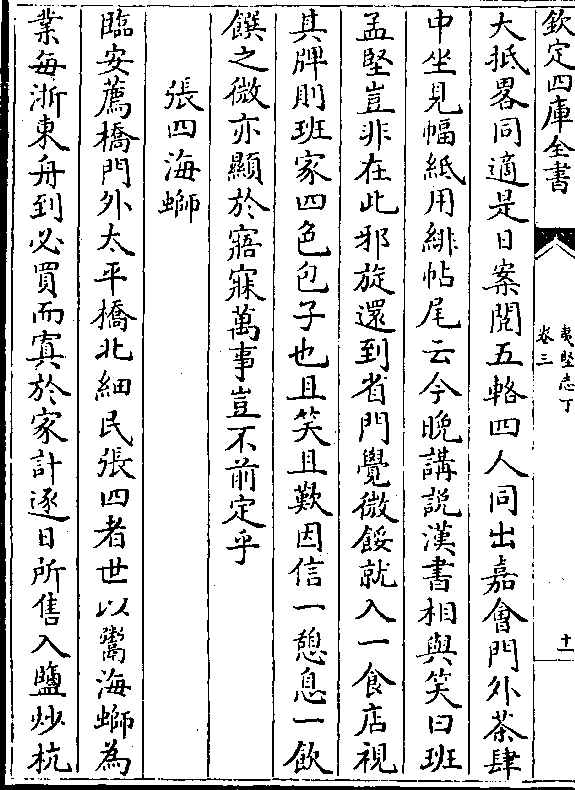 欽定四庫全書
夷堅志丁
卷三
十一
大抵畧同適是日案閱五輅四人同出嘉會門外茶肆
中坐見幅紙用緋帖尾云今晚講説漢書相與笑曰班
孟堅豈非在此邪旋還到省門覺微餒就入一食店視
其牌則班家四色包子也且笑且歎因信一憩息一飲
饌之微亦顯於寤寐萬事豈不前定乎
張四海螄
臨安薦橋門外太平橋北細民張四者世以鬻海螄為
業每浙東舟到必買而寘於家計逐日所售入鹽炒杭